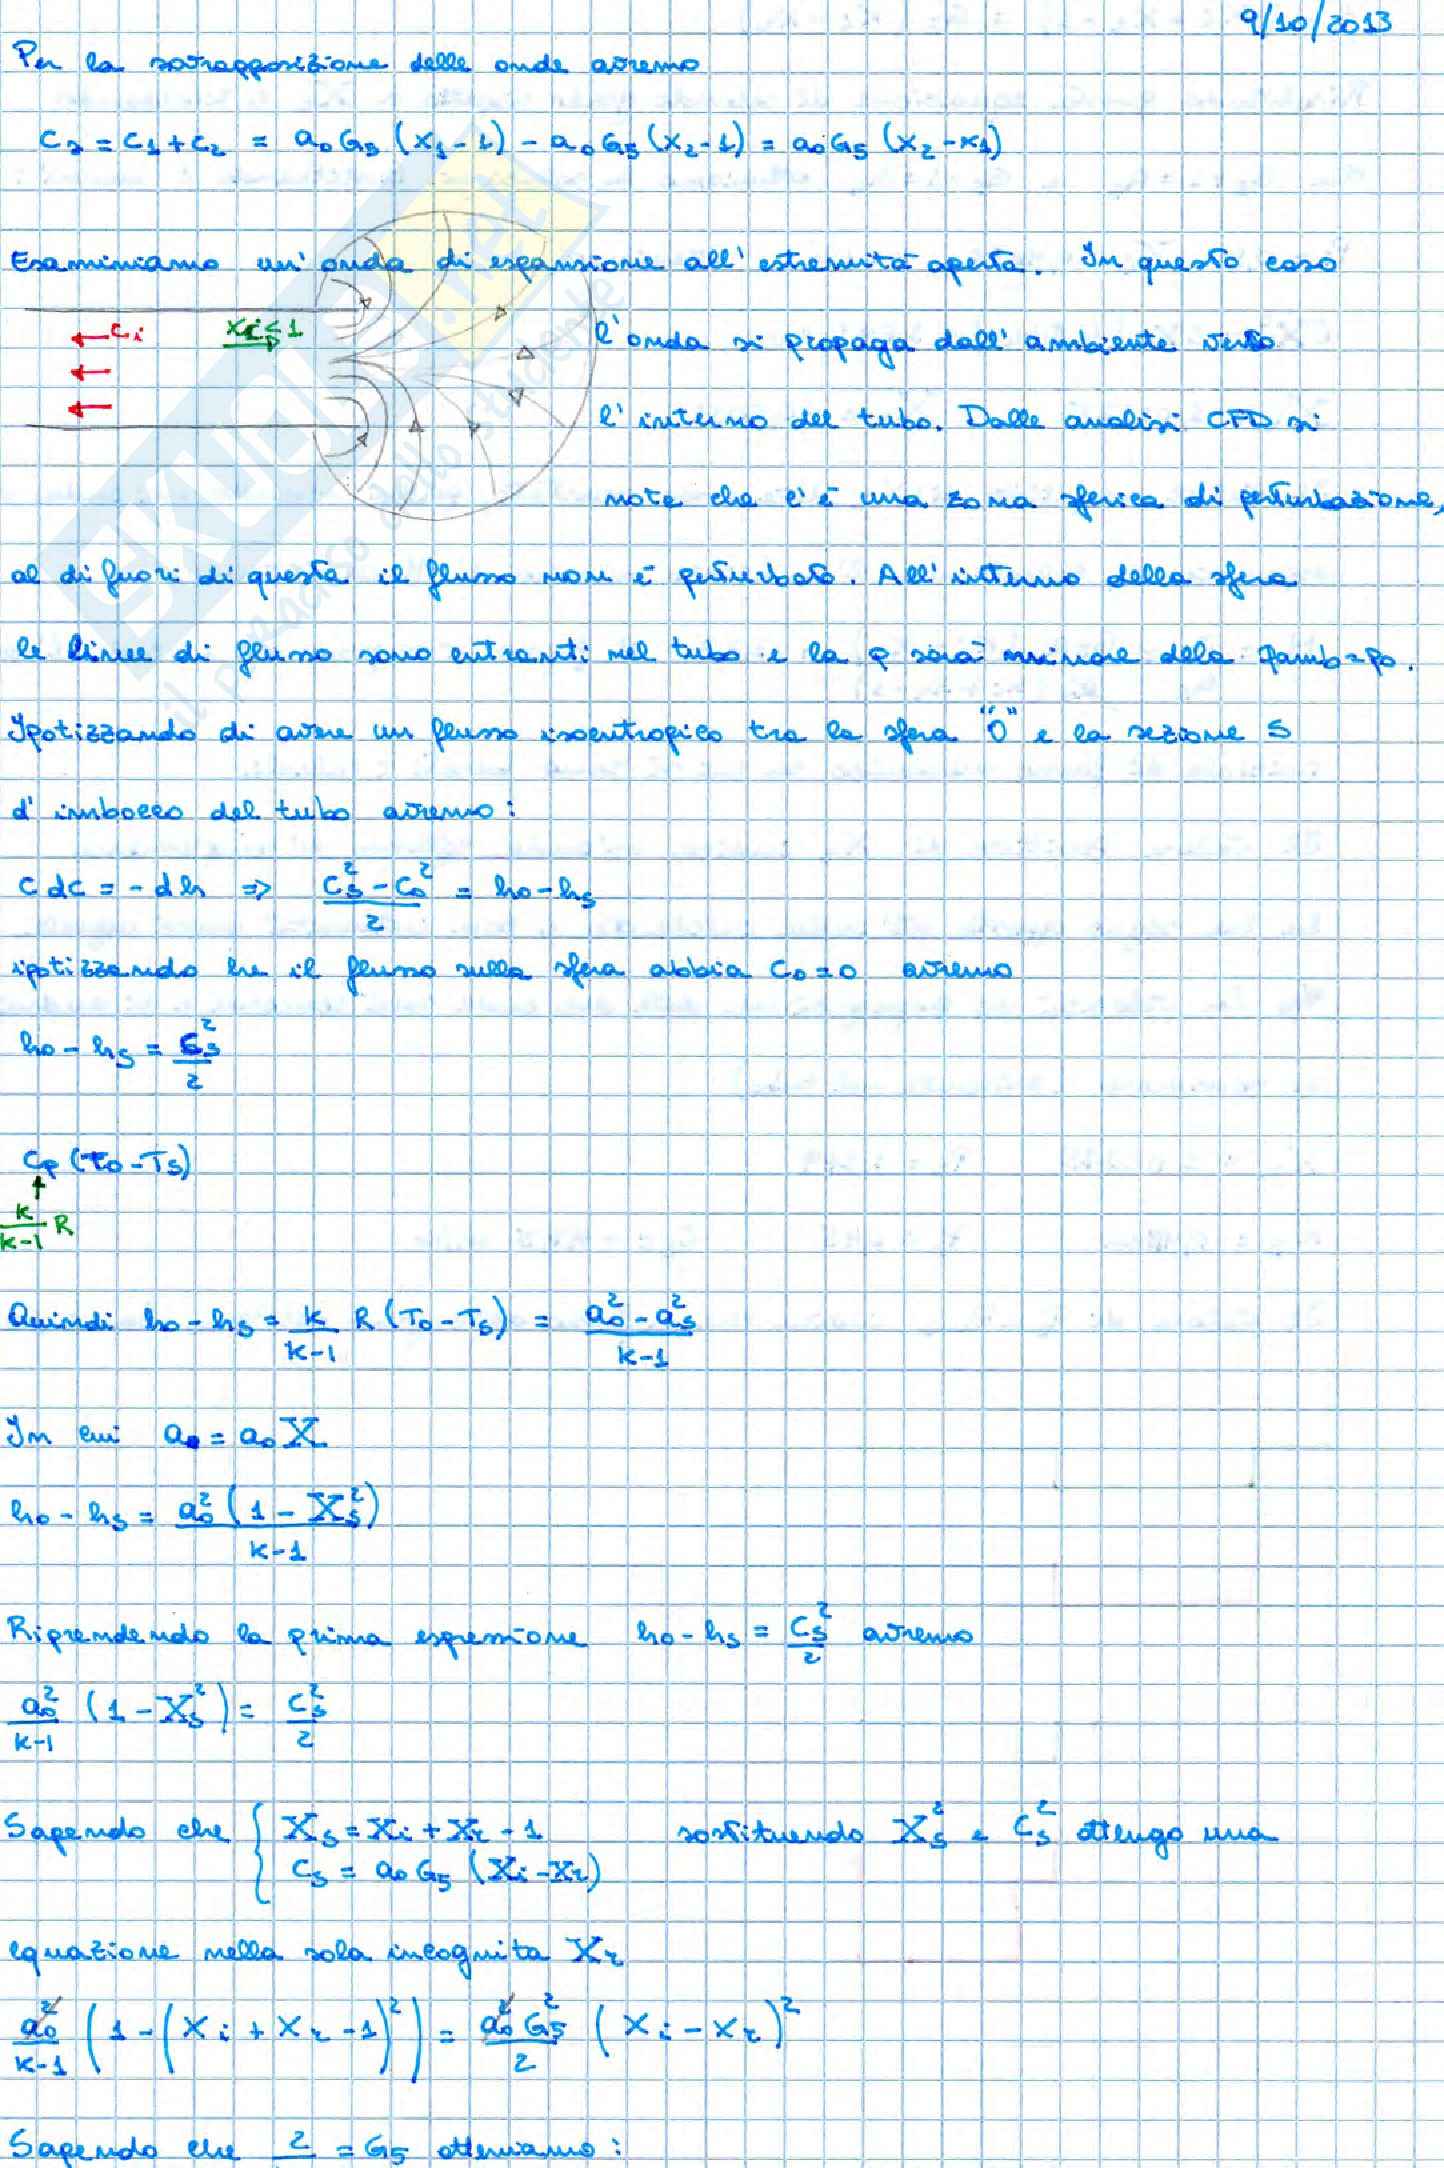 9/10/2013
Per la sovrapposizione delle onde avremo
Cs = C1 + C2 = a0 G5 (X1 - 1) - a0 G5 (X2 - 1) = a0 G5 (X2 - X1)
Esaminiamo un' onda di espansione all' estremità aperta. In questo caso
Ci Xi < 1 l'onda si propaga dall' ambiente verso
l' interno del tubo. Dalle analisi CFD si
nota che c'è una zona sferica di perturbazione,
al di fuori di questa il flusso non è perturbato. All' interno della sfera
le linee di flusso sono entranti nel tubo e la p sarà minore della pamb = p0.
Ipotizzando di avere un flusso isoentropico tra la sfera "0" e la sezione S
d' imbocco del tubo avremo:
c dc = - dh => (Cs² - C0²)/2 = h0 - hs
ipotizzando che il flusso sulla sfera abbia C0 = 0 avremo
h0 - hs = Cs²/2
Cp (T0 - Ts)
k/(k-1) R
Quindi h0 - hs = k/(k-1) R (T0 - Ts) = (a0² - as²)/(k-1)
In cui a = a0 X
h0 - hs = a0² (1 - Xs²)/(k-1)
Riprendendo la prima espressione h0 - hs = Cs²/2 avremo
a0²/(k-1) (1 - Xs²) = Cs²/2
Sapendo che { Xs = Xi + Xr - 1 sostituendo Xs² e Cs² ottengo una
Cs = a0 G5 (Xi - Xr)
equazione nella sola incognita Xr
a0²/(k-1) (1 - (Xi + Xr - 1)²) = a0² G5²/2 (Xi - Xr)²
Sapendo che 2 = G5 otteniamo:
SKUOLA.NET
il paradiso dello studente